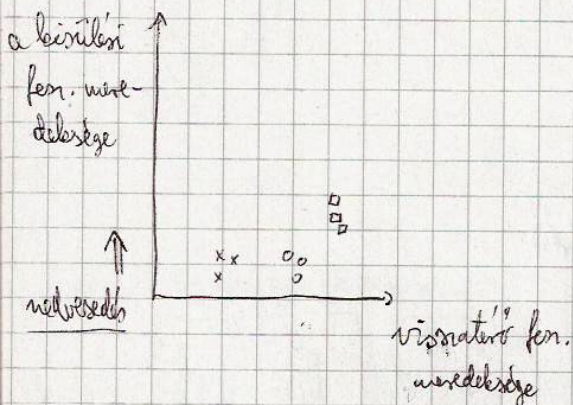 a kisülési
fesz. mere-
deksége
nedvesedés
visszatérő fesz.
meredeksége